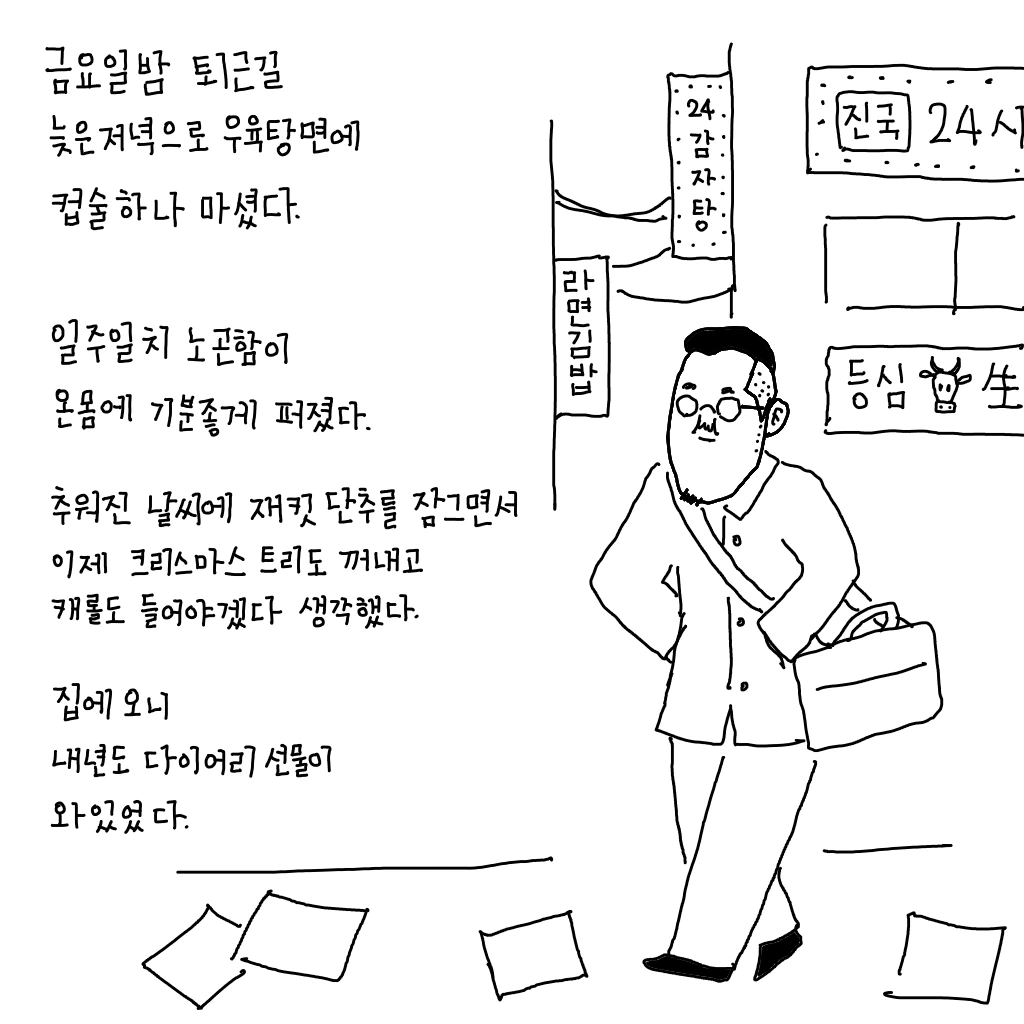 금요일밤 퇴근길
늦은저녁으로 우육탕면에
컵술하나 마셨다.
일주일치 노곤함이
온몸에 기분좋게 퍼졌다.
추워진 날씨에 재킷 단추를 잠그면서
이제 크리스마스 트리도 꺼내고
캐롤도 들어야겠다 생각했다.
집에 오니
내년도 다이어리 선물이
와있었다.
24 감자탕
라면김밥
진국 24시
등심 生